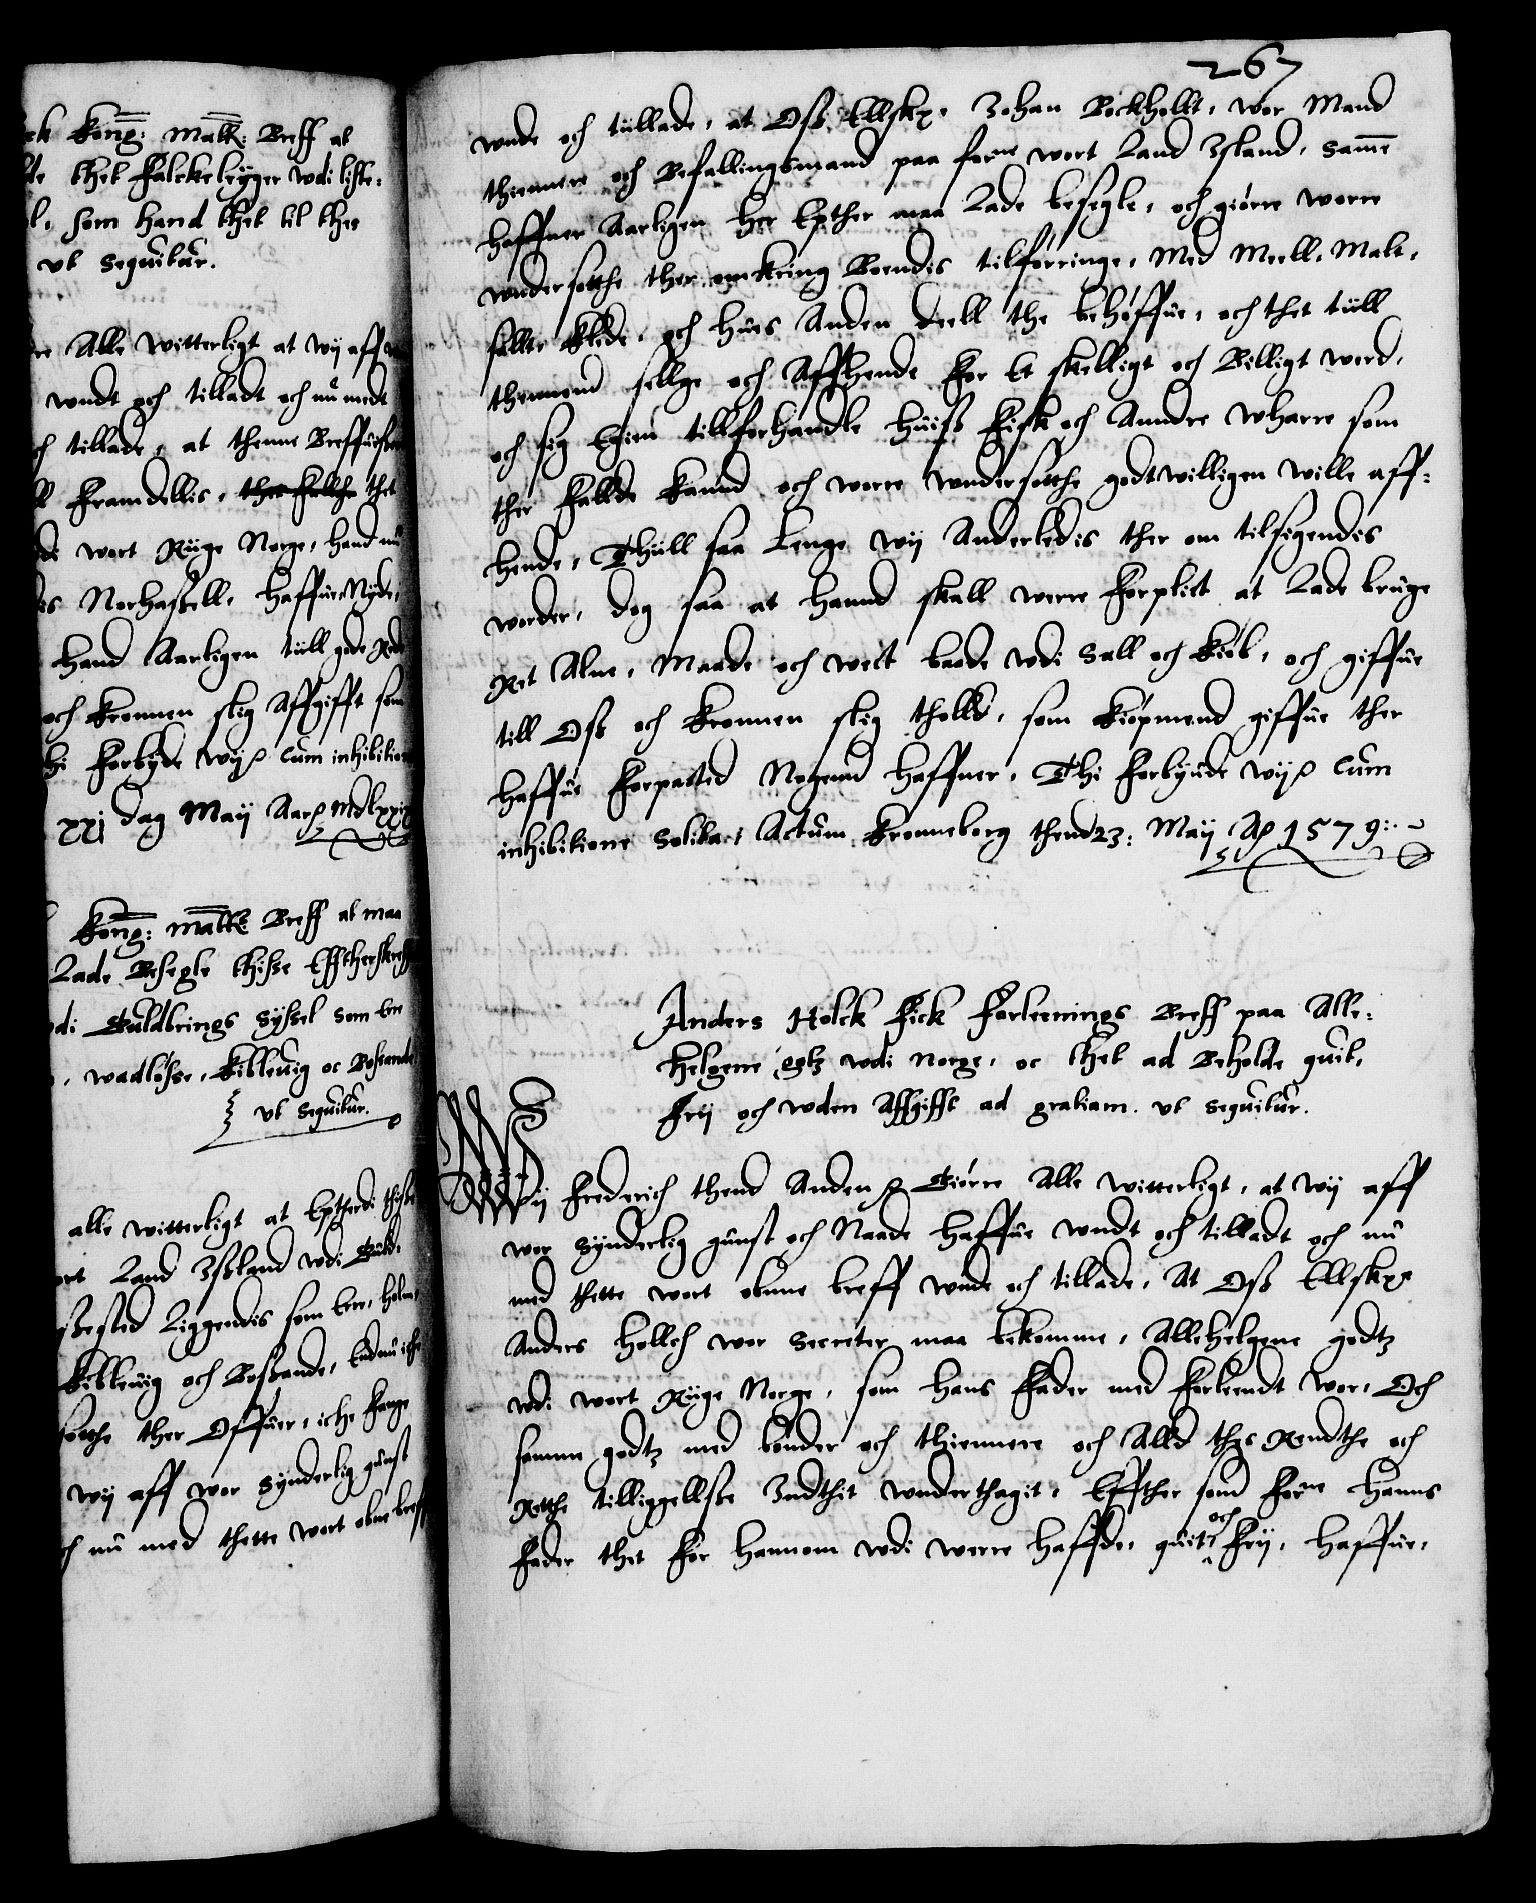 Kong: Matt: Breff at
thet Falckeleyger wdi liste:
som hand thet til thes
vt sequitur.
Alle witterligt at wij aff
wndt och tilladt och nu medt
tillade, at thenne Breffuis
Framdellis, ther Fallche thet
wort Riige Norge, hand nu
Norhassell, haffue, Nyde,
hand Aarligen tiill gode Rede
och Kronnen slig Affgifft som
Forbyde wij cum inhibition
xxj dag Maij Aar MDLxxix
Kong: Matt: Breff at maa
Lade Besegle thisse Effterskreff
Guldbrings Syssel som ere
wadløsse, Kibleuig oc Bosande
vt sequitur.
alle witterligt at Eptherdi thisse
Land Issland wdi Guld:
Liggendis som ere, holm,
Kibleuig och Bossande, Endnu icke
ther Offuer, icke fange
wij aff wor synderlig gunst
nu med thette wort obne breff
267
wnde och tiillade, at Oss Ellske. Johan Bockhollt, wor Mand
thiennere och Befallingsmand paa forne wort Land Island, samme
haffner Aarligen her Epther maa Lade besegle, och giørre worre
wndersotthe ther omkring Boendis tilførringe, Med Meell, Malt,
sallt Klede, och hues Anden deell the behøffue, och thet tiill
thennom sellge och Affhende For Et skelligt och Billigt werd,
och sig Egien tillforhandle huiss Fisk och Anndre wharre som
ther Fallde kannd och worre wndersotthe godtwilligen wille aff-
hende, Thiill saa Lenge wij Anderledis ther om tilsigendis
worder, dog saa at hannd skall werre Forplict at Lade bruge
Ret Alne, Maade och wect baade wdi Sall och Kiøb, och giffue
till Oss och Kronnen slig tholld, som Kiøpmend giffue ther
haffue Forpacted Nogend haffner, Thi Forbiude wij cum
inhibitione solita, Actum Kronneborg thend 23: Maij A 1579:
Anders Holck Fick Forleenings Breff paa Alle:
helgene gotz wdi Norge, oc thet ad Beholde quit,
Frij och wden Affgifft ad gratiam. vt sequitur.
Wij Frederich thend Anden Giørre Alle witterligt, at wij aff
wor synderlig gunst och Naade haffue wndt och tilladt och nu
med thette wort obnne breff wnde och tillade, At Oss Ellske
Anders Hollch wor Secreter maa bekomme, Allehelgene godtz
wdi wort Riige Norge, som hans Fader med Forleendt wor, Och
samme godtz med bønder och thiennere och Alld thes Rendthe och
Rette tilliggellsse Indthet wnderthagit, Effther som Forne hanns
Fader thet For hannom wdi werre haffde, quit och Frij, haffue,